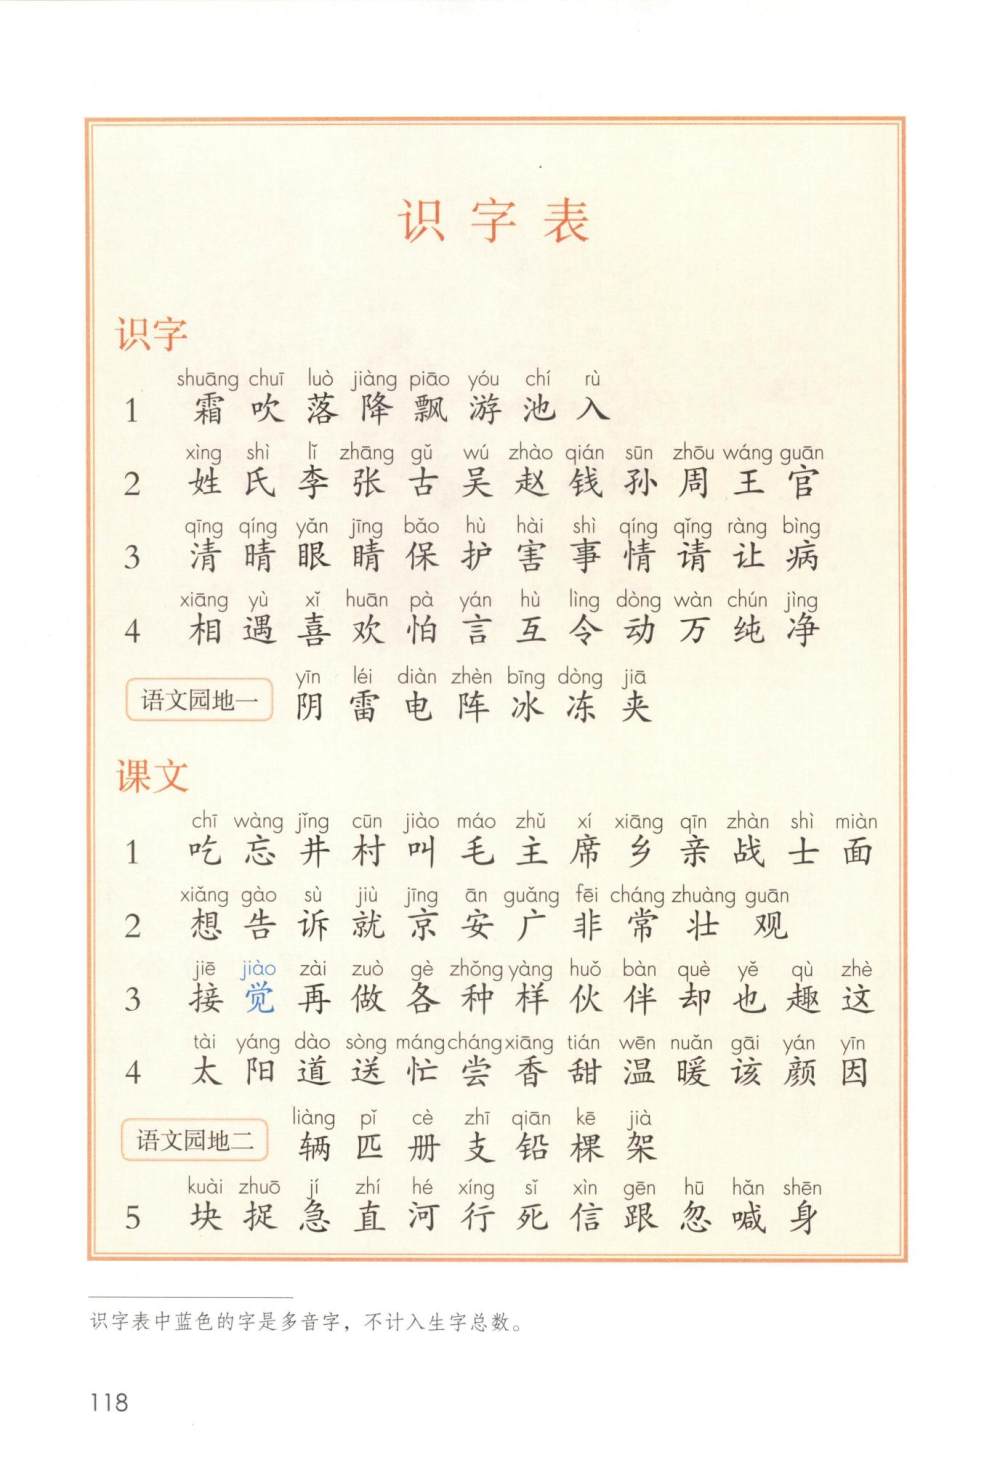 识字表
识字
shuāng chuī luò jiàng piāo yóu chí rù
1 霜 吹 落 降 飘 游 池 入
xìng shì lǐ zhāng gǔ wú zhào qián sūn zhōu wáng guān
2 姓 氏 李 张 古 吴 赵 钱 孙 周 王 官
qīng qíng yǎn jīng bǎo hù hài shì qíng qǐng ràng bìng
3 清 晴 眼 睛 保 护 害 事 情 请 让 病
xiāng yù xǐ huān pà yán hù lìng dòng wàn chún jìng
4 相 遇 喜 欢 怕 言 互 令 动 万 纯 净
yīn léi diàn zhèn bīng dòng jiā
语文园地一 阴 雷 电 阵 冰 冻 夹
课文
chī wàng jǐng cūn jiào máo zhǔ xí xiāng qīn zhàn shì miàn
1 吃 忘 井 村 叫 毛 主 席 乡 亲 战 士 面
xiǎng gào sù jiù jīng ān guǎng fēi cháng zhuàng guān
2 想 告 诉 就 京 安 广 非 常 壮 观
jiē jiào zài zuò gè zhǒng yàng huǒ bàn què yě qù zhè
3 接 觉 再 做 各 种 样 伙 伴 却 也 趣 这
tài yáng dào sòng máng cháng xiāng tián wēn nuǎn gāi yán yīn
4 太 阳 道 送 忙 尝 香 甜 温 暖 该 颜 因
liàng pǐ cè zhī qiān kē jià
语文园地二 辆 匹 册 支 铅 棵 架
kuài zhuō jí zhí hé xíng sǐ xìn gēn hū hǎn shēn
5 块 捉 急 直 河 行 死 信 跟 忽 喊 身
识字表中蓝色的字是多音字，不计入生字总数。
118